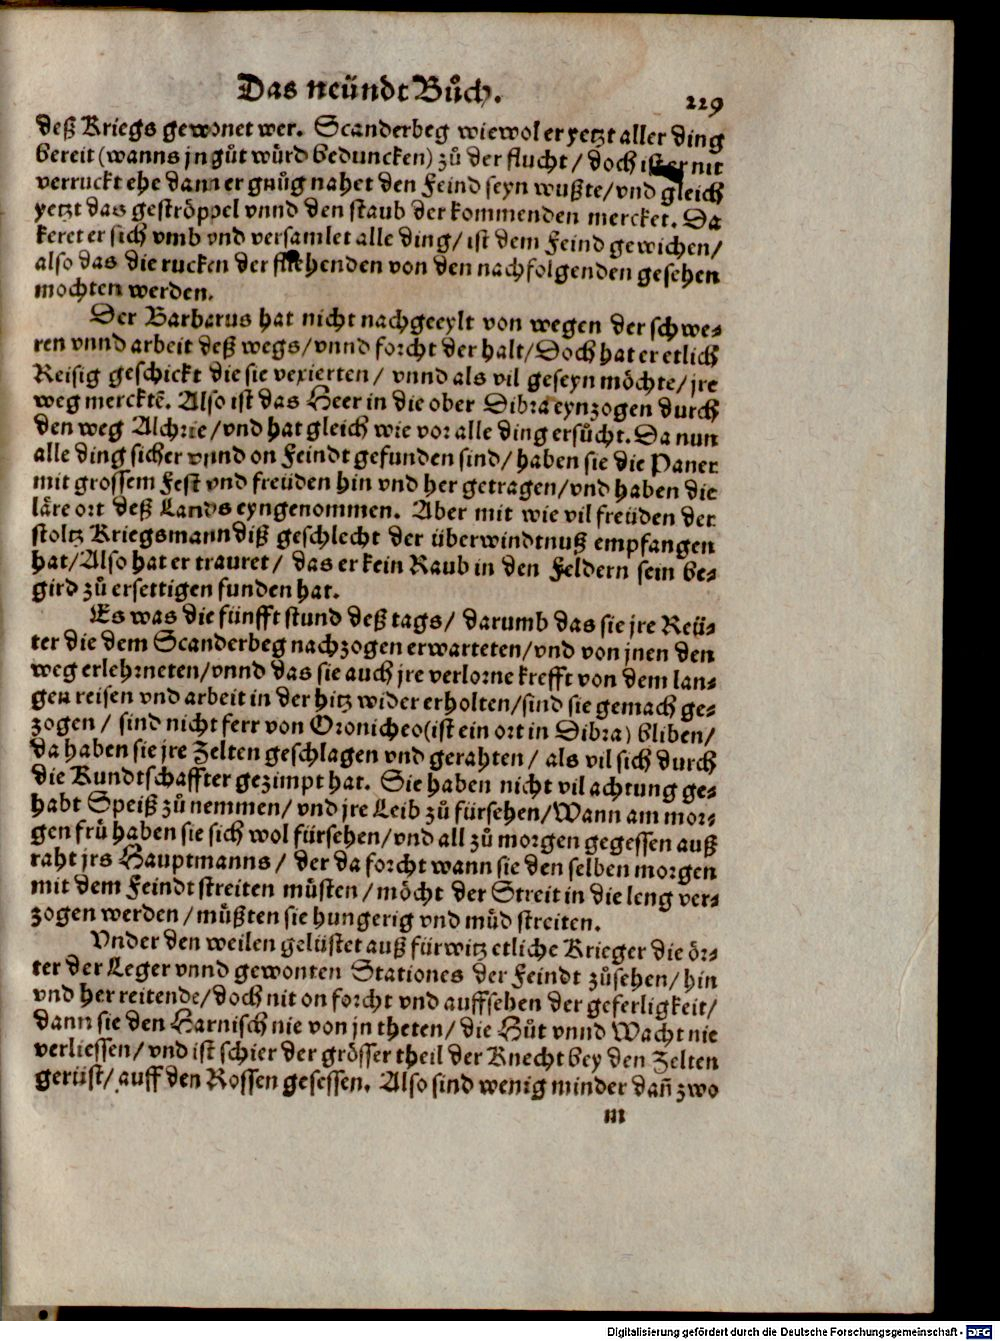 Das neündt Bůch.
229
deß Kriegs gewonet wer. Scanderbeg wiewol er yetzt aller ding
bereit (wanns jn gůt würd beduncken) zů der flucht / doch ist er nit
verruckt ehe dann er gnůg nahet den Feind seyn wußte / vnd gleich
yetzt das geströppel vnnd den staub der kommenden mercket. Da
keret er sich vmb vnd versamlet alle ding / ist dem Feind gewichen /
also das die rucken der fliehenden von den nachfolgenden gesehen
mochten werden.
Der Barbarus hat nicht nachgeeylt von wegen der schwe-
ren vnnd arbeit deß wegs / vnnd forcht der halt / Doch hat er etlich
Reisig geschickt die sie vexierten / vnnd als vil geseyn möchte / jre
weg mercktẽ. Also ist das Heer in die ober Dibra eynzogen durch
den weg Alchrie / vnd hat gleich wie vor alle ding ersůcht. Da nun
alle ding sicher vnnd on Feindt gefunden sind / haben sie die Paner
mit grossem Fest vnd freüden hin vnd her getragen / vnd haben die
läre ort deß Lands eyngenommen. Aber mit wie vil freüden der
stoltz Kriegsmann diß geschlecht der überwindtnuß empfangen
hat / Also hat er trauret / das er kein Raub in den Feldern sein be-
gird zů ersettigen funden hat.
Es was die fünfft stund deß tags / darumb das sie jre Reü-
ter die dem Scanderbeg nachzogen erwarteten / vnd von jnen den
weg erlehrneten / vnnd das sie auch jre verlorne krefft von dem lan-
gen reisen vnd arbeit in der hitz wider erholten / sind sie gemach ge-
zogen / sind nicht ferr von Oronicheo (ist ein ort in Dibra) bliben /
da haben sie jre Zelten geschlagen vnd gerahten / als vil sich durch
die Kundtschaffter gezimpt hat. Sie haben nicht vil achtung ge-
habt Speiß zů nemmen / vnd jre Leib zů fürsehen / Wann am mor-
gen frů haben sie sich wol fürsehen / vnd all zů morgen gegessen auß
raht jrs Hauptmanns / der da forcht wann sie den selben morgen
mit dem Feindt streiten müsten / möcht der Streit in die leng ver-
zogen werden / müßten sie hungerig vnd müd streiten.
Vnder den weilen gelüstet auß fürwitz etliche Krieger die ör-
ter der Leger vnnd gewonten Stationes der Feindt zůsehen / hin
vnd her reitende / doch nit on forcht vnd auffsehen der geferligkeit /
dann sie den Harnisch nie von jn theten / die Hůt vnnd Wacht nie
verliessen / vnd ist schier der grösser theil der Knecht bey den Zelten
gerüst / auff den Rossen gesessen. Also sind wenig minder dañ zwo
m
Digitalisierung gefördert durch die Deutsche Forschungsgemeinschaft - DFG